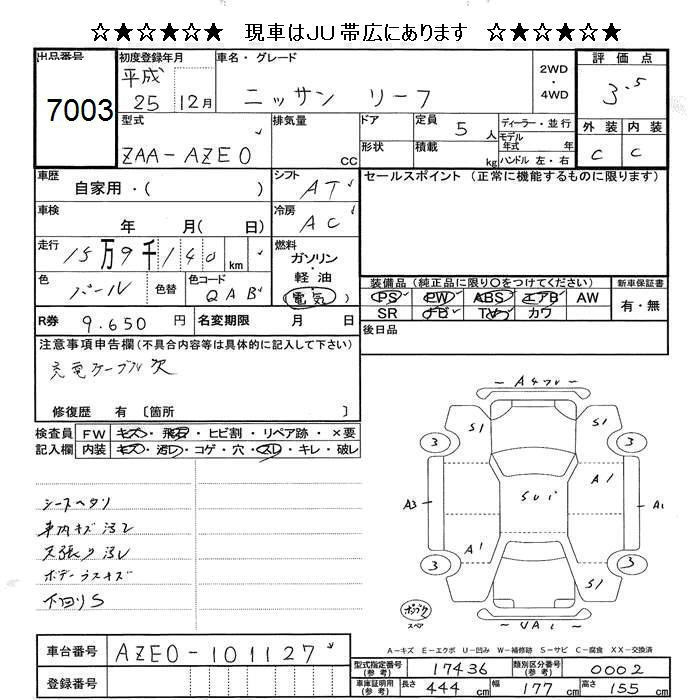 ☆★☆★☆★ 現車はJU帯広にあります ☆★☆★☆★
出品番号 初度登録年月 車名・グレード 評価点
7003 平成 25 12月 ニッサン リーフ 2WD・4WD 3.5
型式 排気量 ドア 定員 5人 ディーラー・並行 外装 内装
ZAA-AZE0 CC 形状 積載 kg モデル年式 年 ハンドル 左・右 C C
車歴 自家用・( ) シフト AT セールスポイント(正常に機能するものに限ります)
車検 年 月( 日) 冷房 AC
走行 15万9千140 km 燃料 ガソリン・軽油 電気
色 パール 色替 色コード QAB 装備品(純正品に限り○をつけてください) 新車保証書
PS PW ABS エアB AW 有・無
R券 9.650円 名変期限 月 日 SR ナビ TV カワ
注意事項申告欄(不具合内容等は具体的に記入して下さい) 後日品
充電ケーブル欠
修復歴 有〔箇所 〕
検査員 FW キズ・飛石・ヒビ割・リペア跡・×要
記入欄 内装 キズ・汚レ・コゲ・穴・スレ・キレ・破レ
シートヘタリ
車内キズ汚レ
天張り汚レ
ボデーラスキズ
下回りS
S1 S1
3 3
A1
A3 A1
A1
3 3
S1
UA1
スペア
A-キズ E-エクボ U-凹み W-補修跡 S-サビ C-腐食 XX-交換済
車台番号 AZE0-101127
登録番号
型式指定番号(参考) 17436 類別区分番号(参考) 0002
車庫証明用(参考) 長さ 444cm 幅 177cm 高さ 155cm